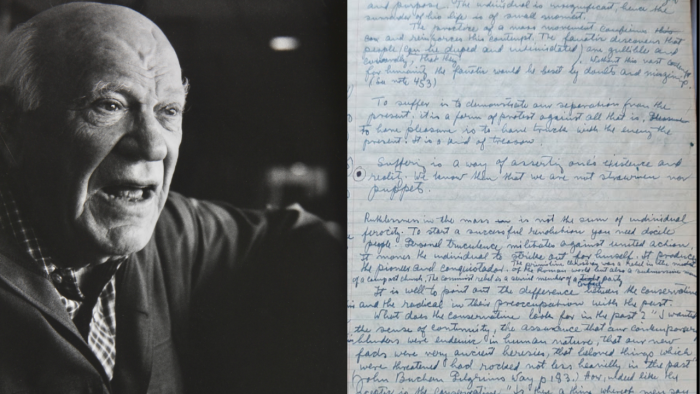 and purpose. The individual is insignificant, hence the
surrender of his life is of small moment.
The structure of a mass movement confirms this
and reinforces this contempt. The fanatic discovers that
people (can be duped and intimidated) are gullible and
cowardly, that they. Without this vast contempt
for humanity the fanatic would be beset by doubts and
(See note 453)
To suffer is to demonstrate our separation from the
present, it is a form of protest against all that is. Pleasure
to have pleasure is to have truck with the enemy, the
present. It is a kind of treason.
Suffering is a way of asserting one's existence and
reality. We know then that we are not strawmen nor
puppets.
Ruthlessness in the mass is not the sum of individual
ferocity. To start a successful revolution you need docile
people. Personal truculence militates against united action.
It moves the individual to strike out for himself. It produces
the pioneer and conquistador. The primitive Christian was a rebel in the
of the Roman world but also a submissive
of a compact church. The communist rebel is a servile member of a
compact
It is well to point out the difference between the conservative
and the radical in their preoccupation with the past.
What does the conservative look for in the past? "I wanted
the sense of continuity, the assurance that our contemporary
blunders were endemic in human nature, that our new
fads were very ancient heresies, that beloved things which
were threatened had rocked not less heavily in the past
John Buchan Pilgrims Way p 183.) How, indeed like the
is the conservative. "Is there a thing whereof men say